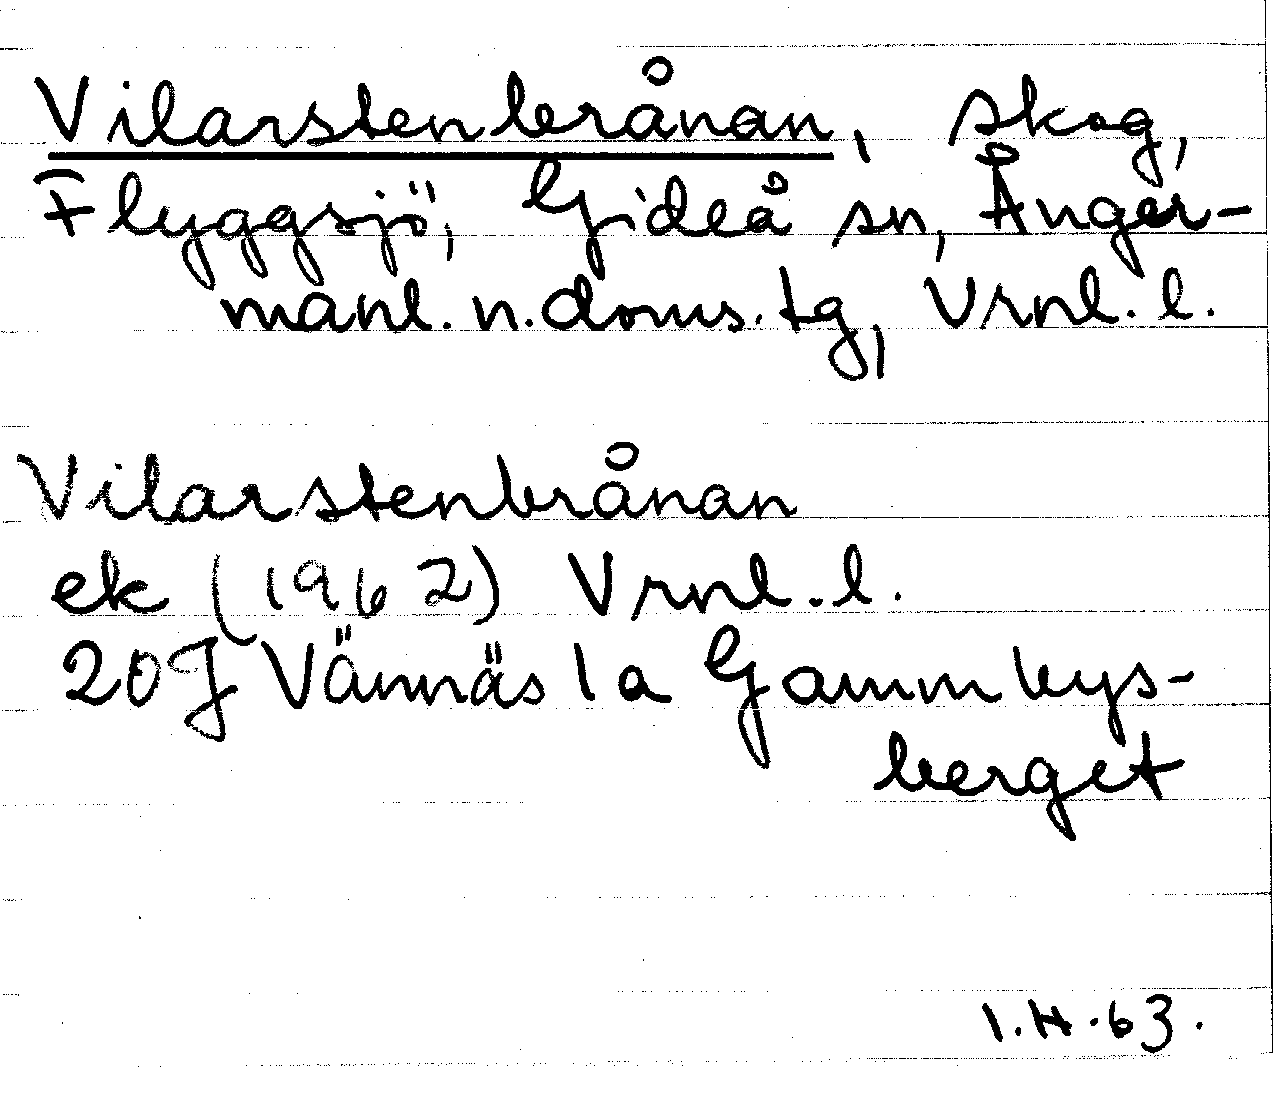 Vilarstenbrånan, skog,
Flyggsjö, Gideå sn, Ånger-
manl. n. doms. tg, Vrnl. l.
Vilarstenbrånan
ek (1962) Vrnl. l.
20J Vännäs 1a Gammbys-
berget
I.H.63.